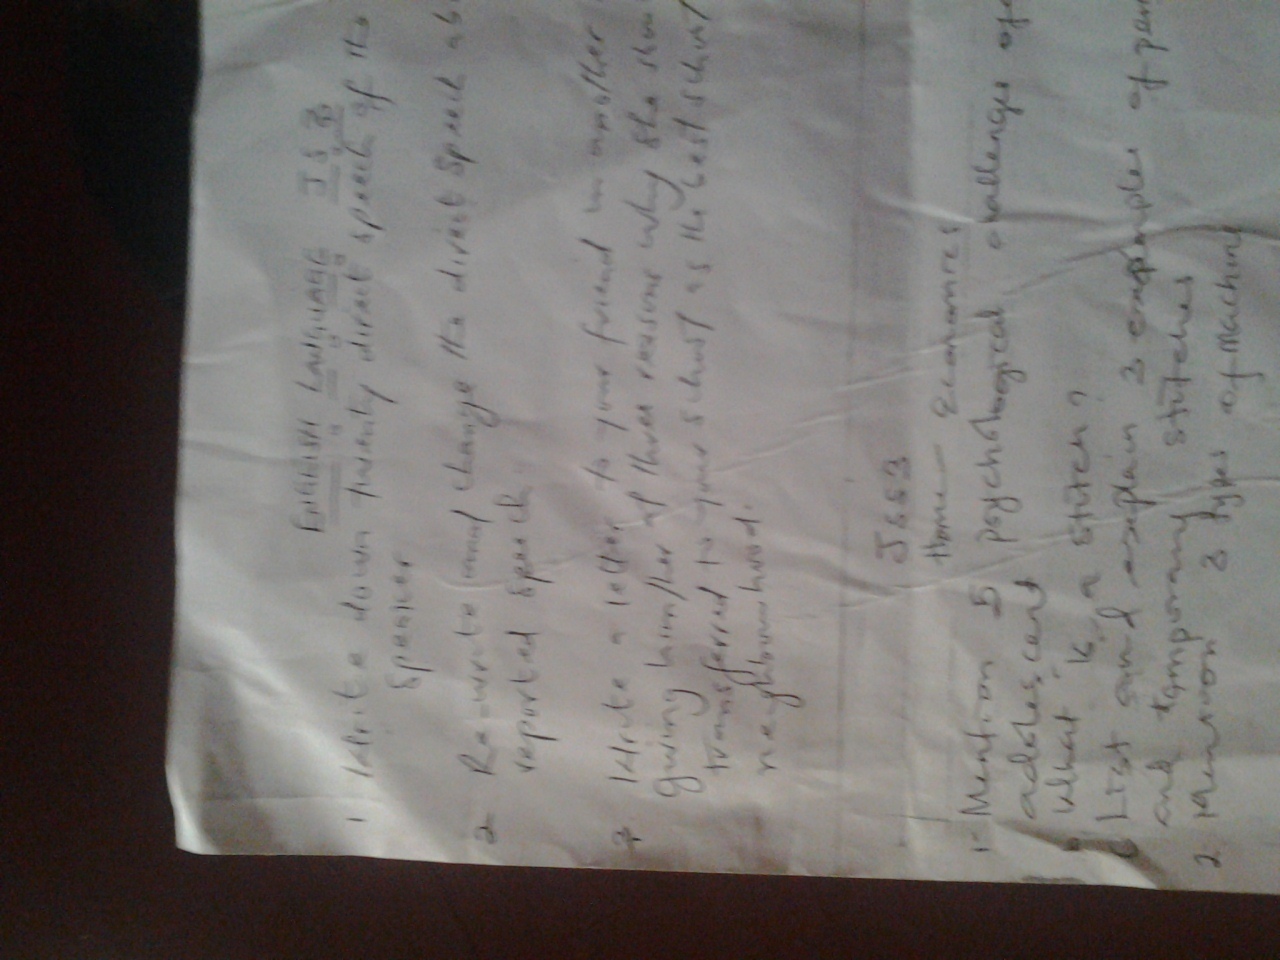 ENGLISH LANGUAGE JS 3
1 Write down twenty direct speech of the
Speaker
2 Rewrite and change the direct speech
reported speech
3. Write a letter to your friend in another
giving him/her at three reasons why she
transferred to your school as the best school
neighbourhood.
JSS3
Home Economics
1. Mention 5 psychological challenges of
adolescent
b What is a stitch?
c List and explain 3 examples of
and temporary stitches
2. Mention 3 types of machine